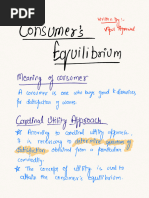 Consumer's
Equilibrium
Written By :-
Meaning of consumer
A consumer is one who buys good & services
for satisfaction of wants.
Cardinal Utility Approach
According to cardinal utility approach, it
is measuring to
satisfaction obtained from a particular
commodity.
The concept of utility is used to
the consumer's equilibrium.